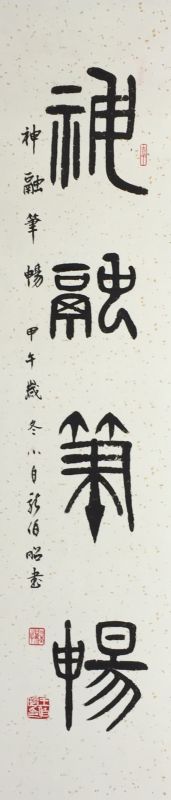 神融筆暢
神融筆暢 甲午歲冬月伯昭書